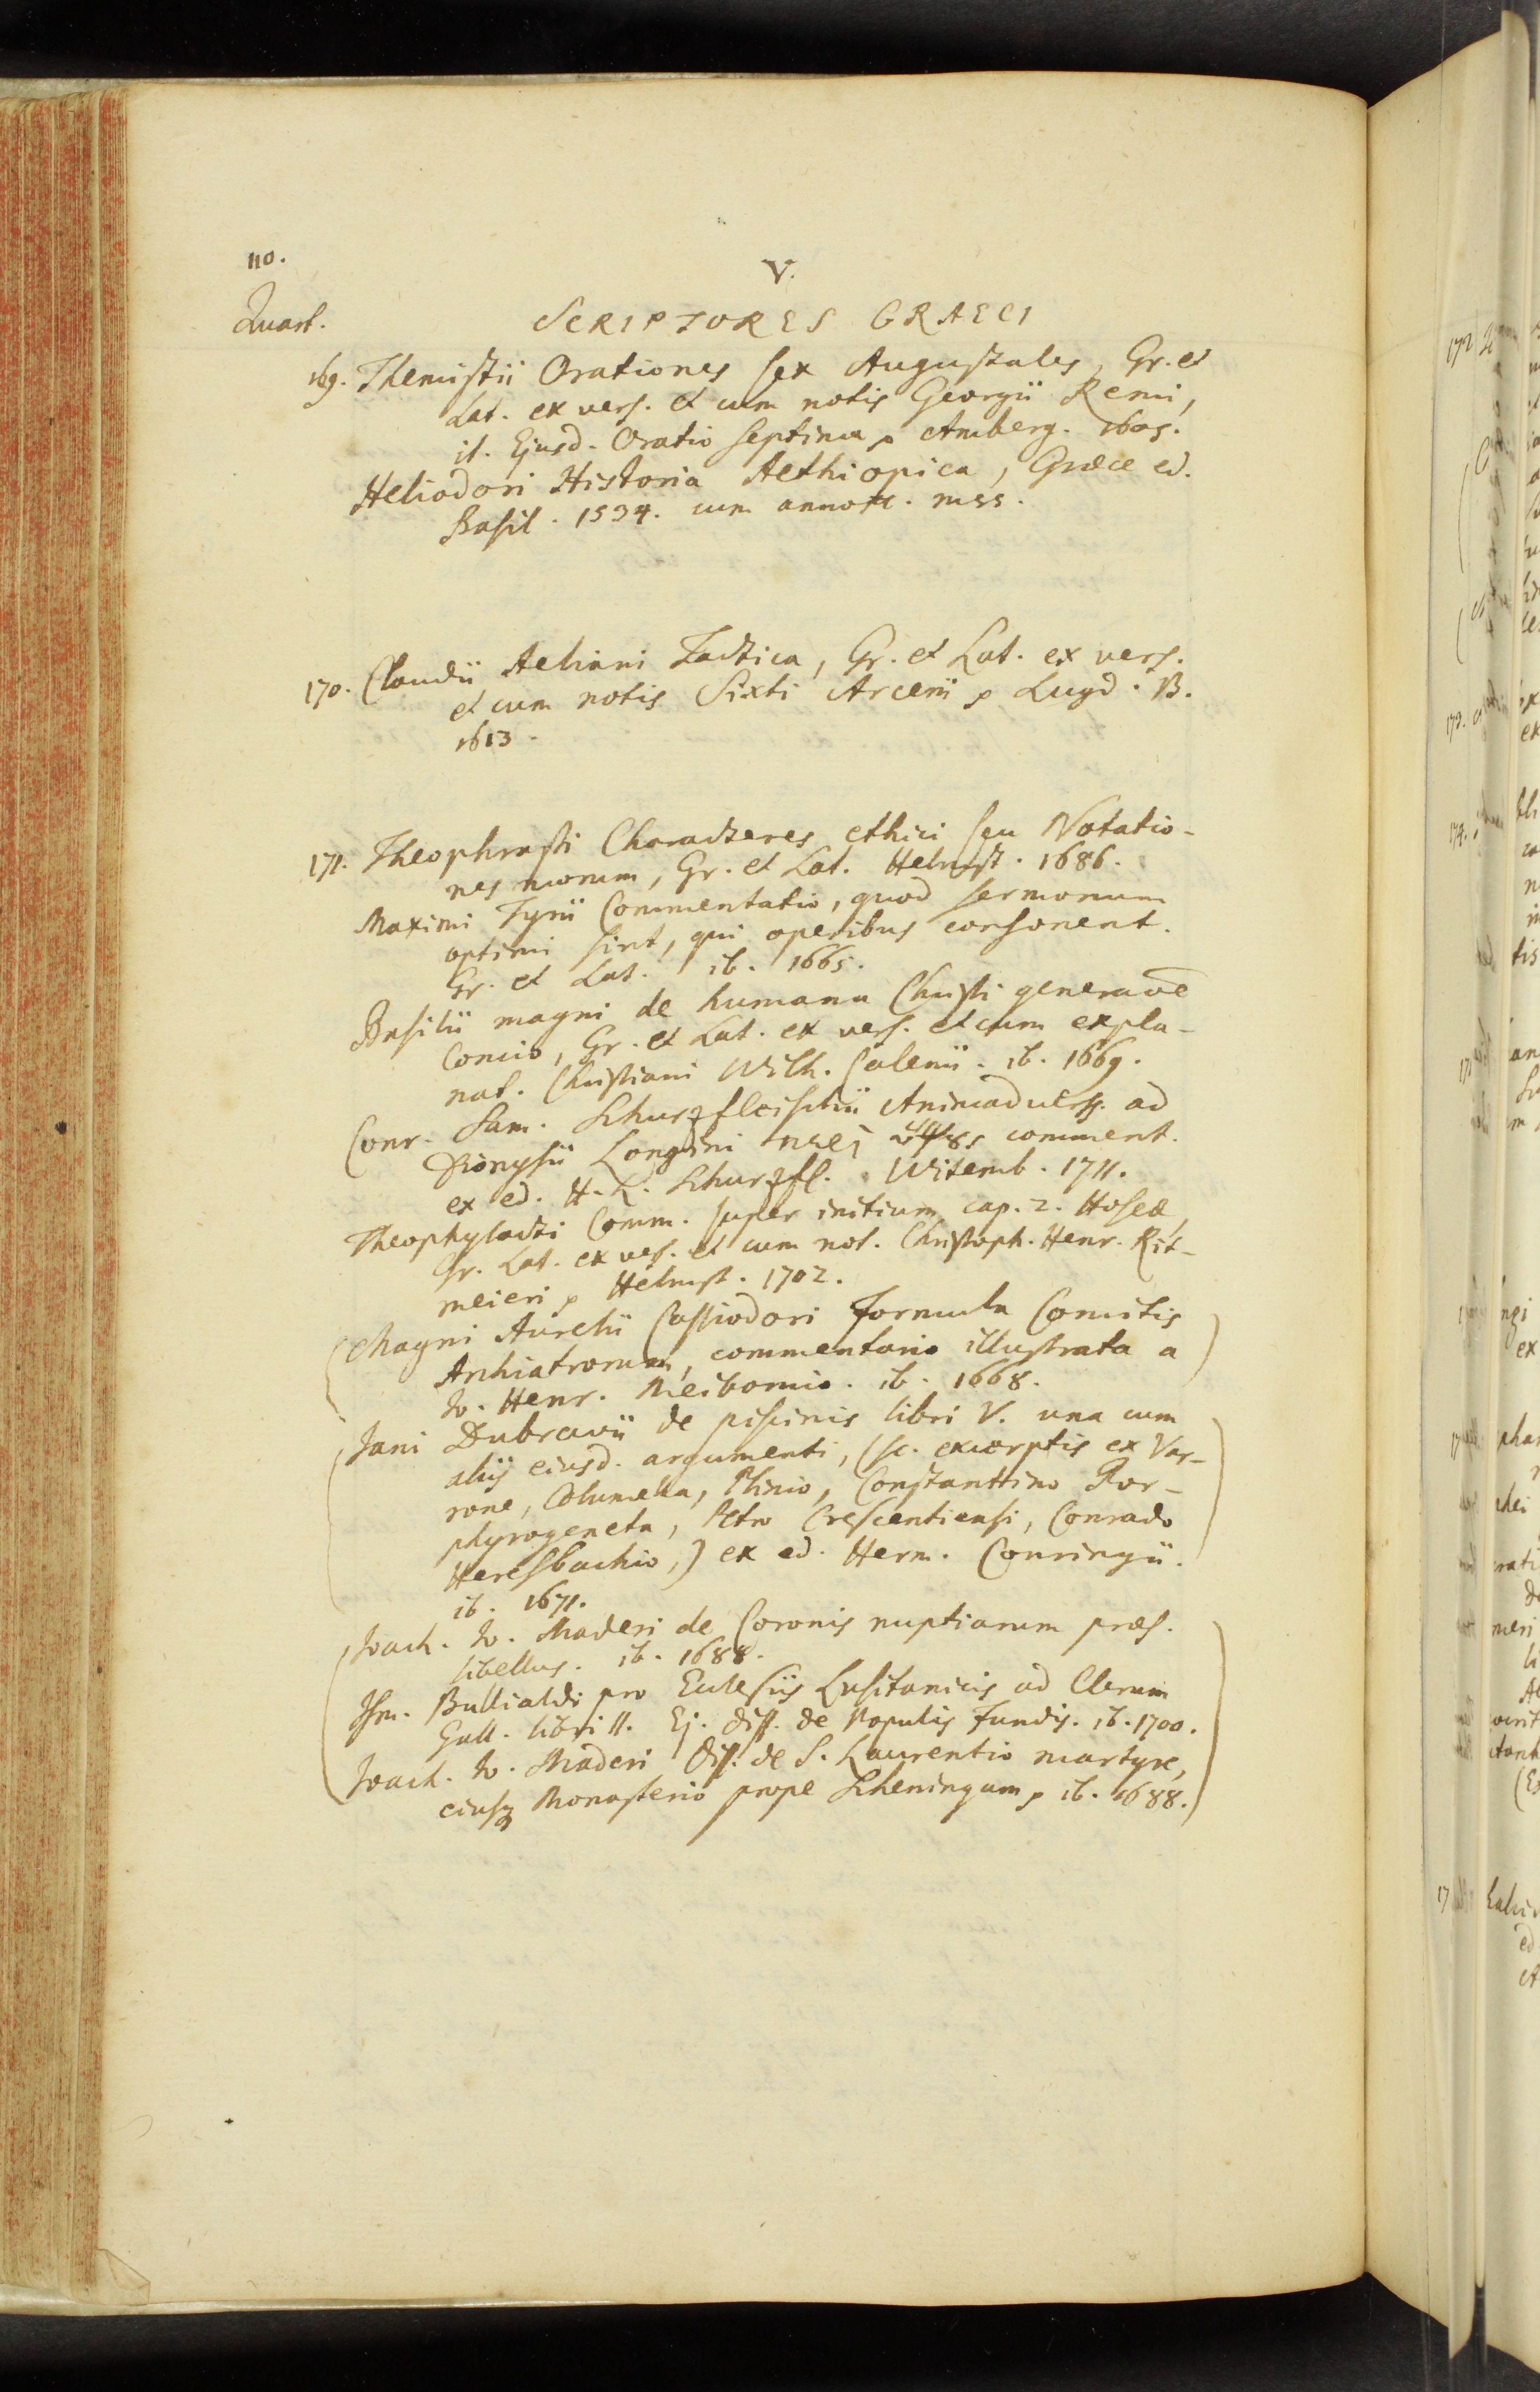 110.
V.
Quart.
SCRIPTORES GRAECI
169. Themistii Orationes sex Augustales, Gr. et
Lat. ex vers. et cum notis Georgii Remi,
it. Ejusd. Oratio septima, Amberg. 1605.
Heliodori Historia Aethiopica, Græce ed.
Basil. 1534. cum annott. mss.
170. Claudii Aeliani Tactica, Gr. et Lat. ex vers.
et cum notis Sixti Arcerii, Lugd. B.
1613.
171. Theophrasti Characteres ethici seu Notatio-
nes morum, Gr. et Lat. Helmst. 1686.
Maximi Tyrii Commentatio, quod sermonum
optimi sint, qui operibus consonent.
Gr. et Lat. ib. 1665.
Basilii magni de humana Christi generaõe
Concio, Gr. et Lat. ex vers. et cum expla-
nat. Christiani Wilh. Calenii. ib. 1669.
Conr. Sam. Schurzfleischii Animadverss. ad
Dionysii Longini περὶ ὕψους comment.
ex ed. H. L. Schurzfl. Witemb. 1711.
Theophylacti Comm. super initium cap. 2. Hoseæ,
Gr. Lat. ex vers. et cum not. Christoph. Henr. Rit-
meieri, Helmst. 1702.
(Magni Aurelii Cassiodori Formula Comitis
Archiatrorum, commentario illustrata a
Jo. Henr. Meibomio. ib. 1668.)
(Jani Dubravii de piscinis libri V. una cum
aliis eiusd. argumenti, (sc. excerptis ex Var-
rone, Columella, Plinio, Constanttino Por-
phyrogeneta, Petro Crescentiensi, Conrado
Heresbachio,) ex ed. Herm. Conringii.
ib. 1671.)
(Joach. Jo. Maderi de Coronis nuptiarum præs.
libellus. ib. 1688.
Ism. Bullialdi pro Eclesiis Lusitanicis ad Clerum
Gall. libri II. Ej. diss. de Populis Fundis. ib. 1700.
Joach. Jo. Maderi Diss. de S. Laurentio martyre,
eiusq Monasterio prope Scheningam, ib. 1688.)